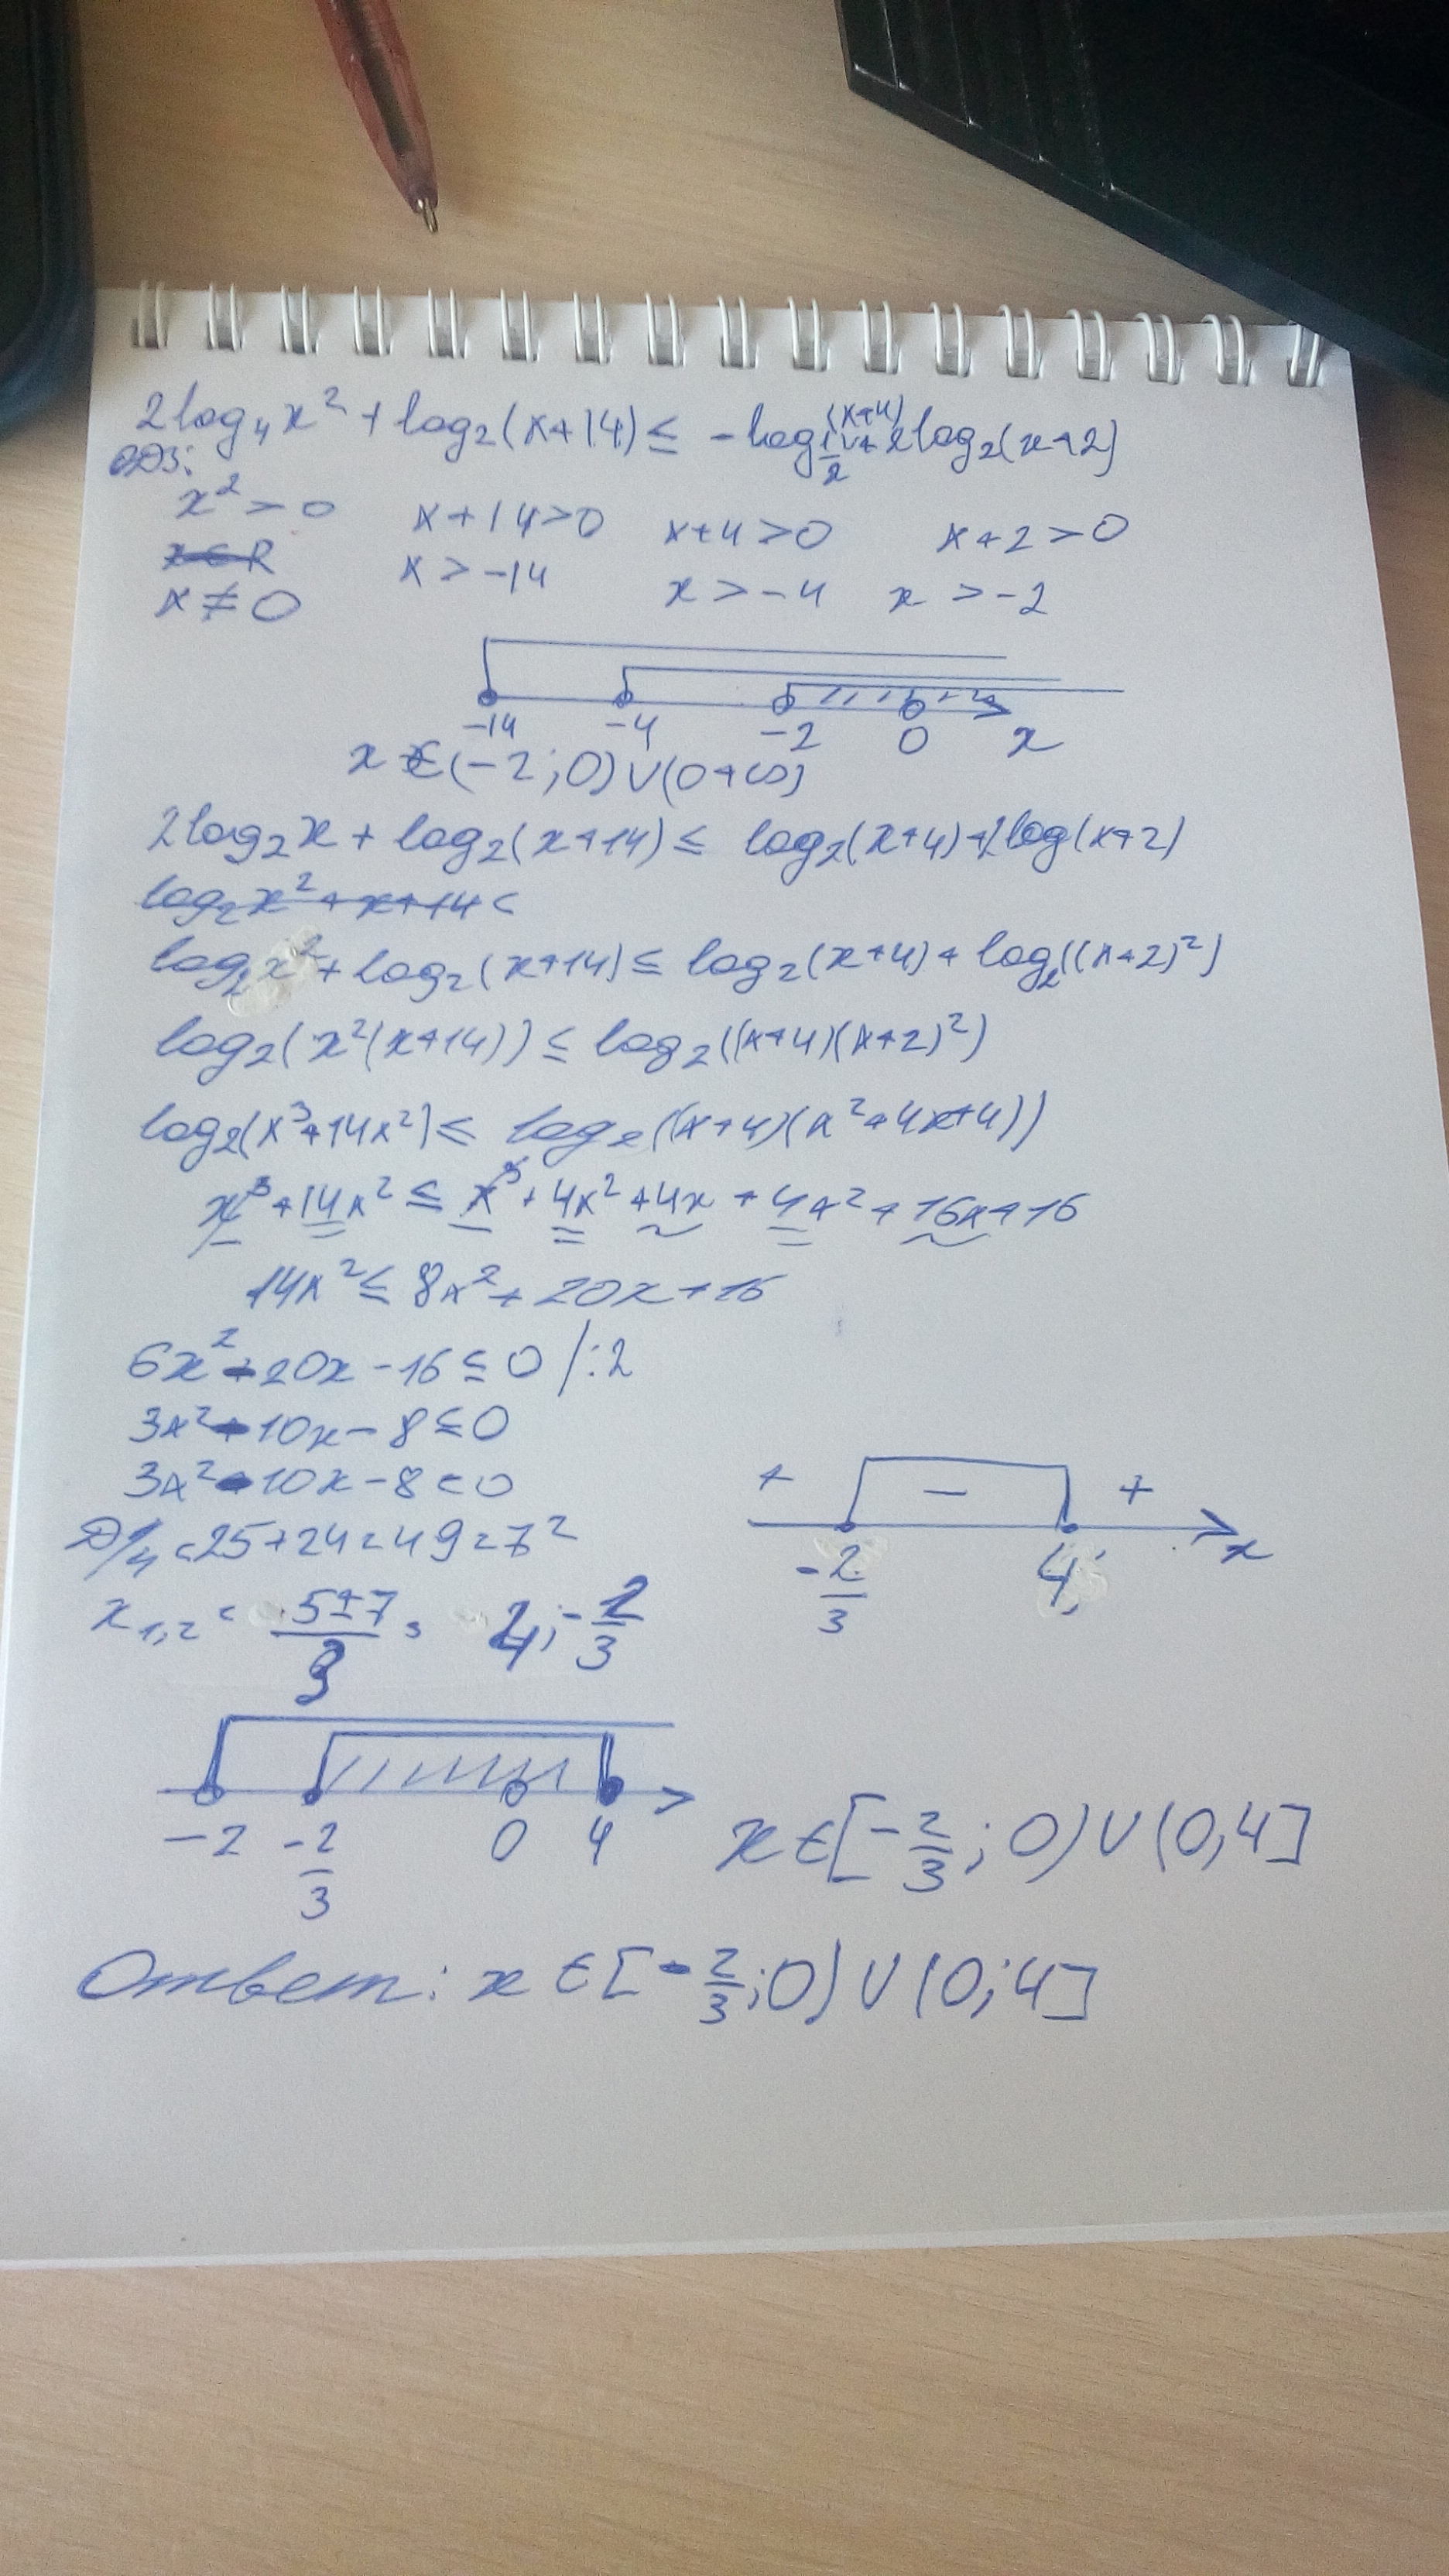 2log₄x² + log₂(x+14) ≤ -log_{1/2}(x+4) + 2log₂(x+2)
ОДЗ:
x² > 0   x+14>0   x+4>0   x+2>0
x∈R   x>-14   x>-4   x>-2
x≠0
-14 -4 -2 0 x
x ∈ (-2;0)∪(0+∞)
2log₂x + log₂(x+14) ≤ log₂(x+4)+2log(x+2)
log₂x²+x+14<
log₂x²+log₂(x+14) ≤ log₂(x+4)+log₂((x+2)²)
log₂(x²(x+14)) ≤ log₂((x+4)(x+2)²)
log₂(x³+14x²) ≤ log₂((x+4)(x²+4x+4))
x³+14x² ≤ x³+4x²+4x+4x²+16x+16
14x² ≤ 8x²+20x+16
6x²-20x-16 ≤ 0 /:2
3x²-10x-8 ≤ 0
3x²-10x-8=0
+ - +
D/4=25+24=49=7²
-2/3 4; x
x₁,₂ = (5±7)/3 = 4; -2/3
-2 -2/3 0 4
x∈[-2/3; 0)∪(0,4]
Ответ: x∈[-2/3;0)∪(0;4]